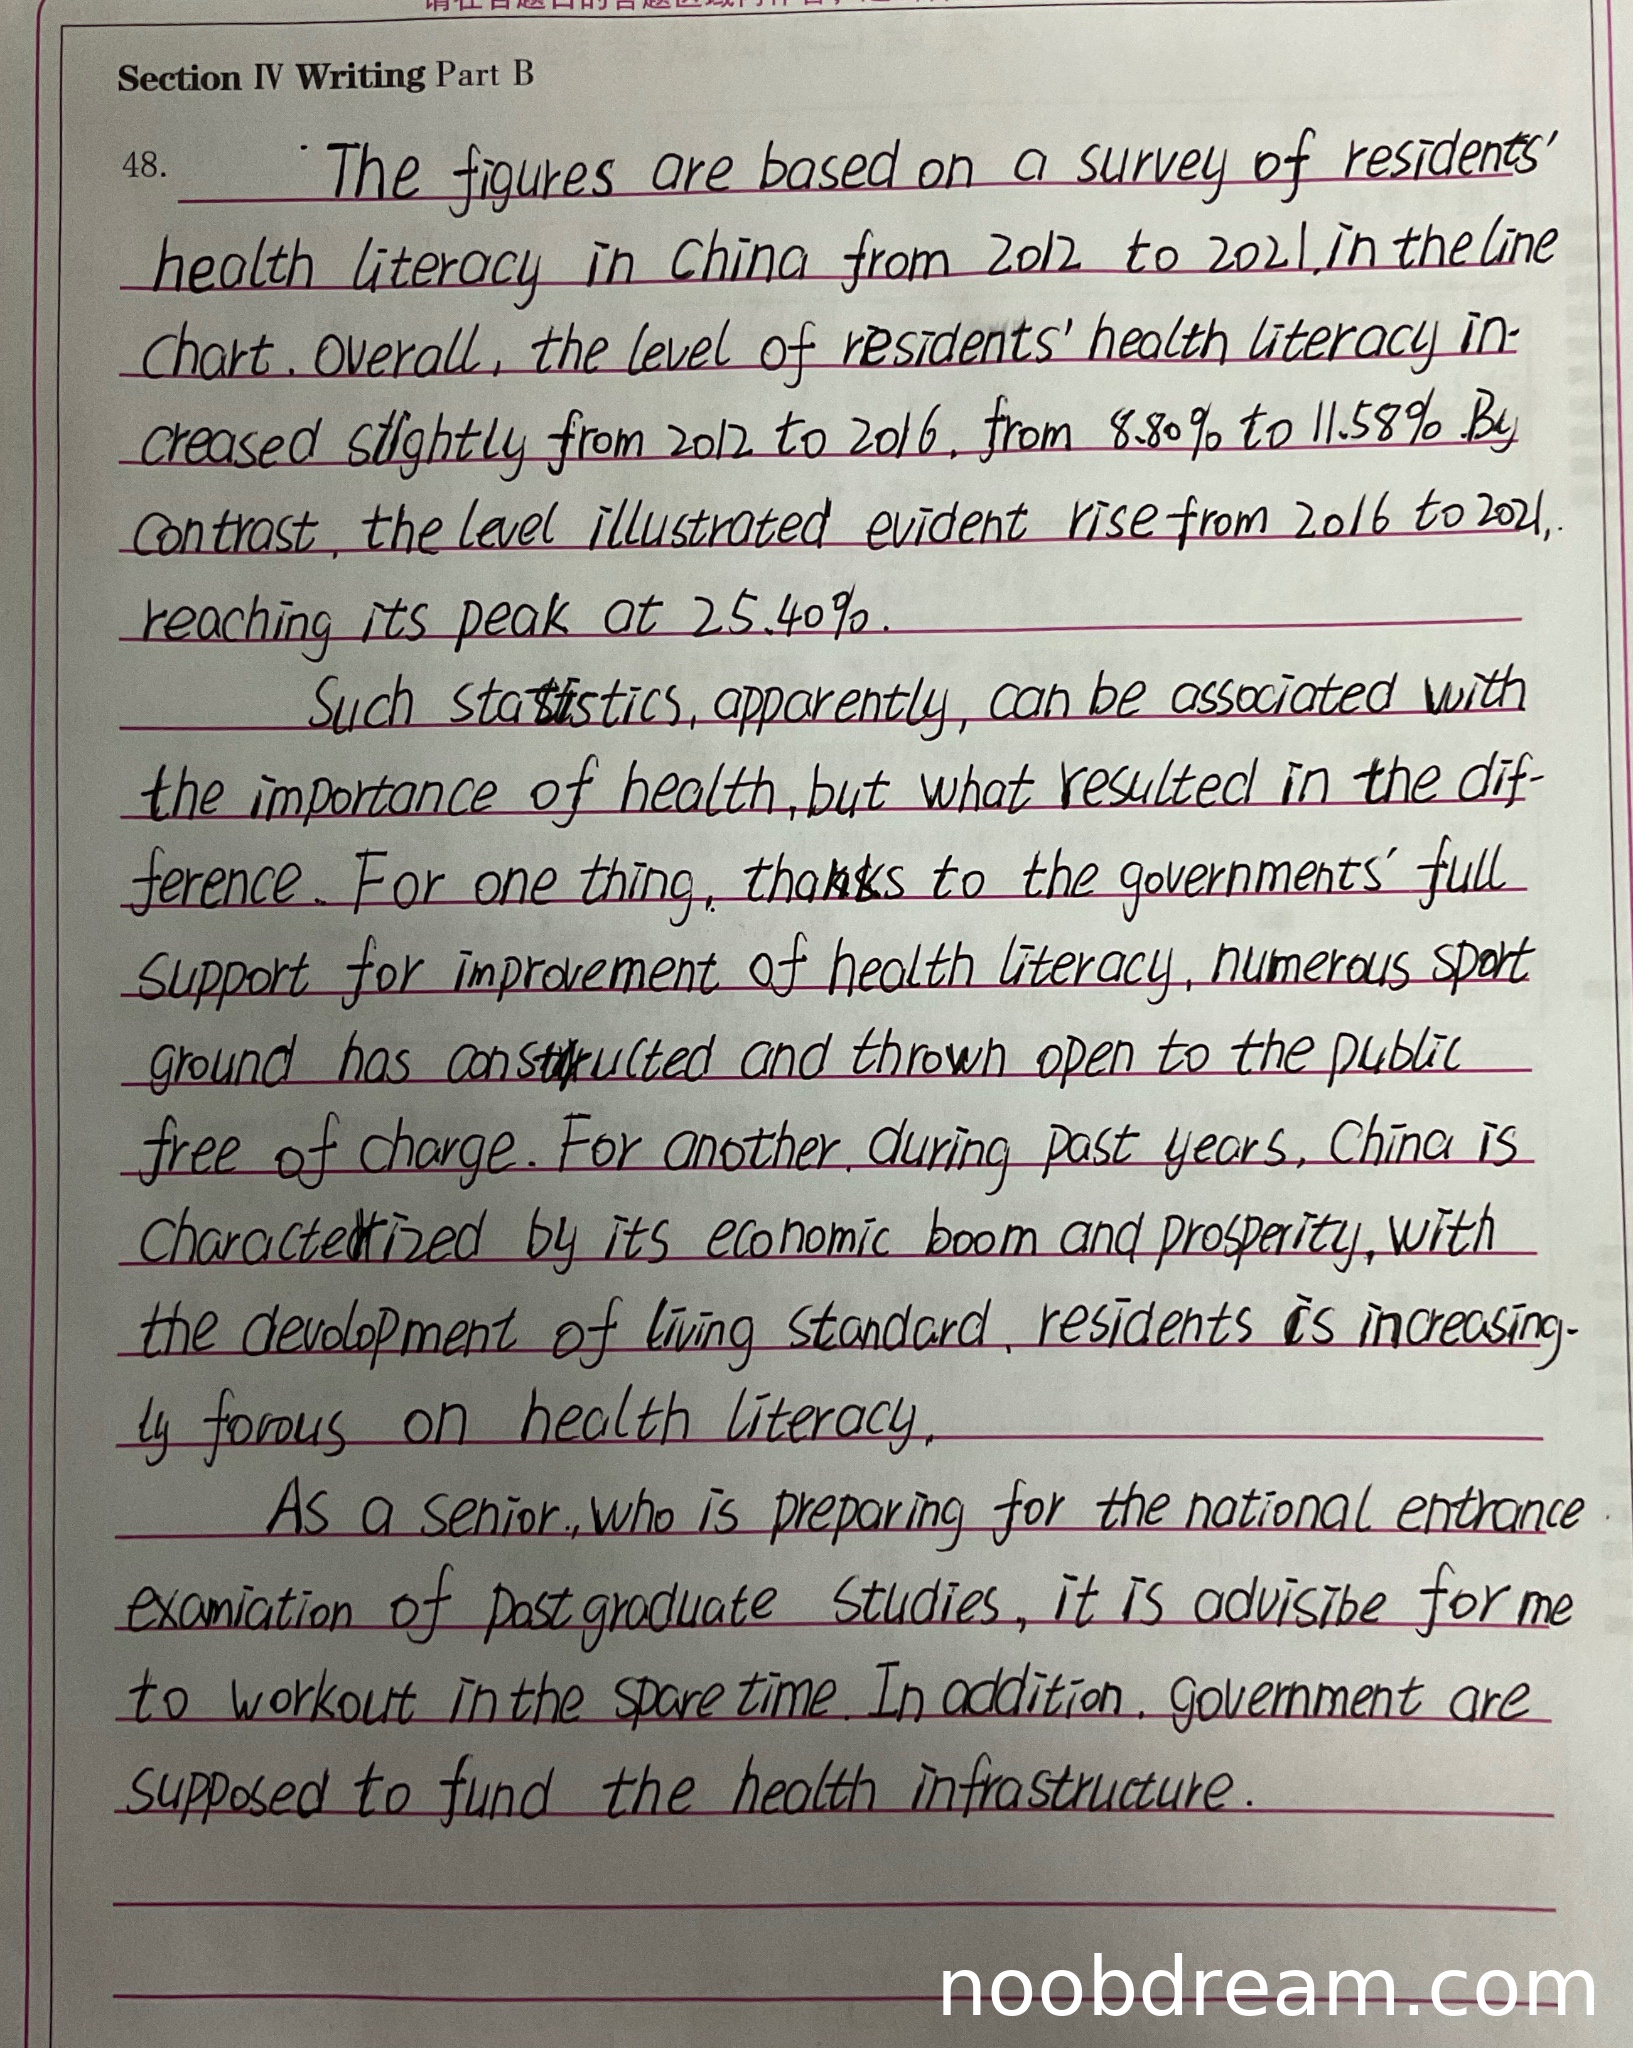 Section IV Writing Part B
48. The figures are based on a survey of residents'
health literacy in China from 2012 to 2021, in the line
chart. Overall, the level of residents' health literacy in-
creased slightly from 2012 to 2016, from 8.80% to 11.58%. By
contrast, the level illustrated evident rise from 2016 to 2021,
reaching its peak at 25.40%.
Such statistics, apparently, can be associated with
the importance of health, but what resulted in the dif-
ference. For one thing, thanks to the governments' full
support for improvement of health literacy, numerous sport
ground has constructed and thrown open to the public
free of charge. For another, during past years, China is
characterized by its economic boom and prosperity, with
the devolopment of living standard, residents is increasing-
ly forous on health literacy.
As a senior, who is preparing for the national entrance
examiation of postgraduate studies, it is advisibe for me
to workout in the spare time. In addition, government are
supposed to fund the health infrastructure.
noobdream.com